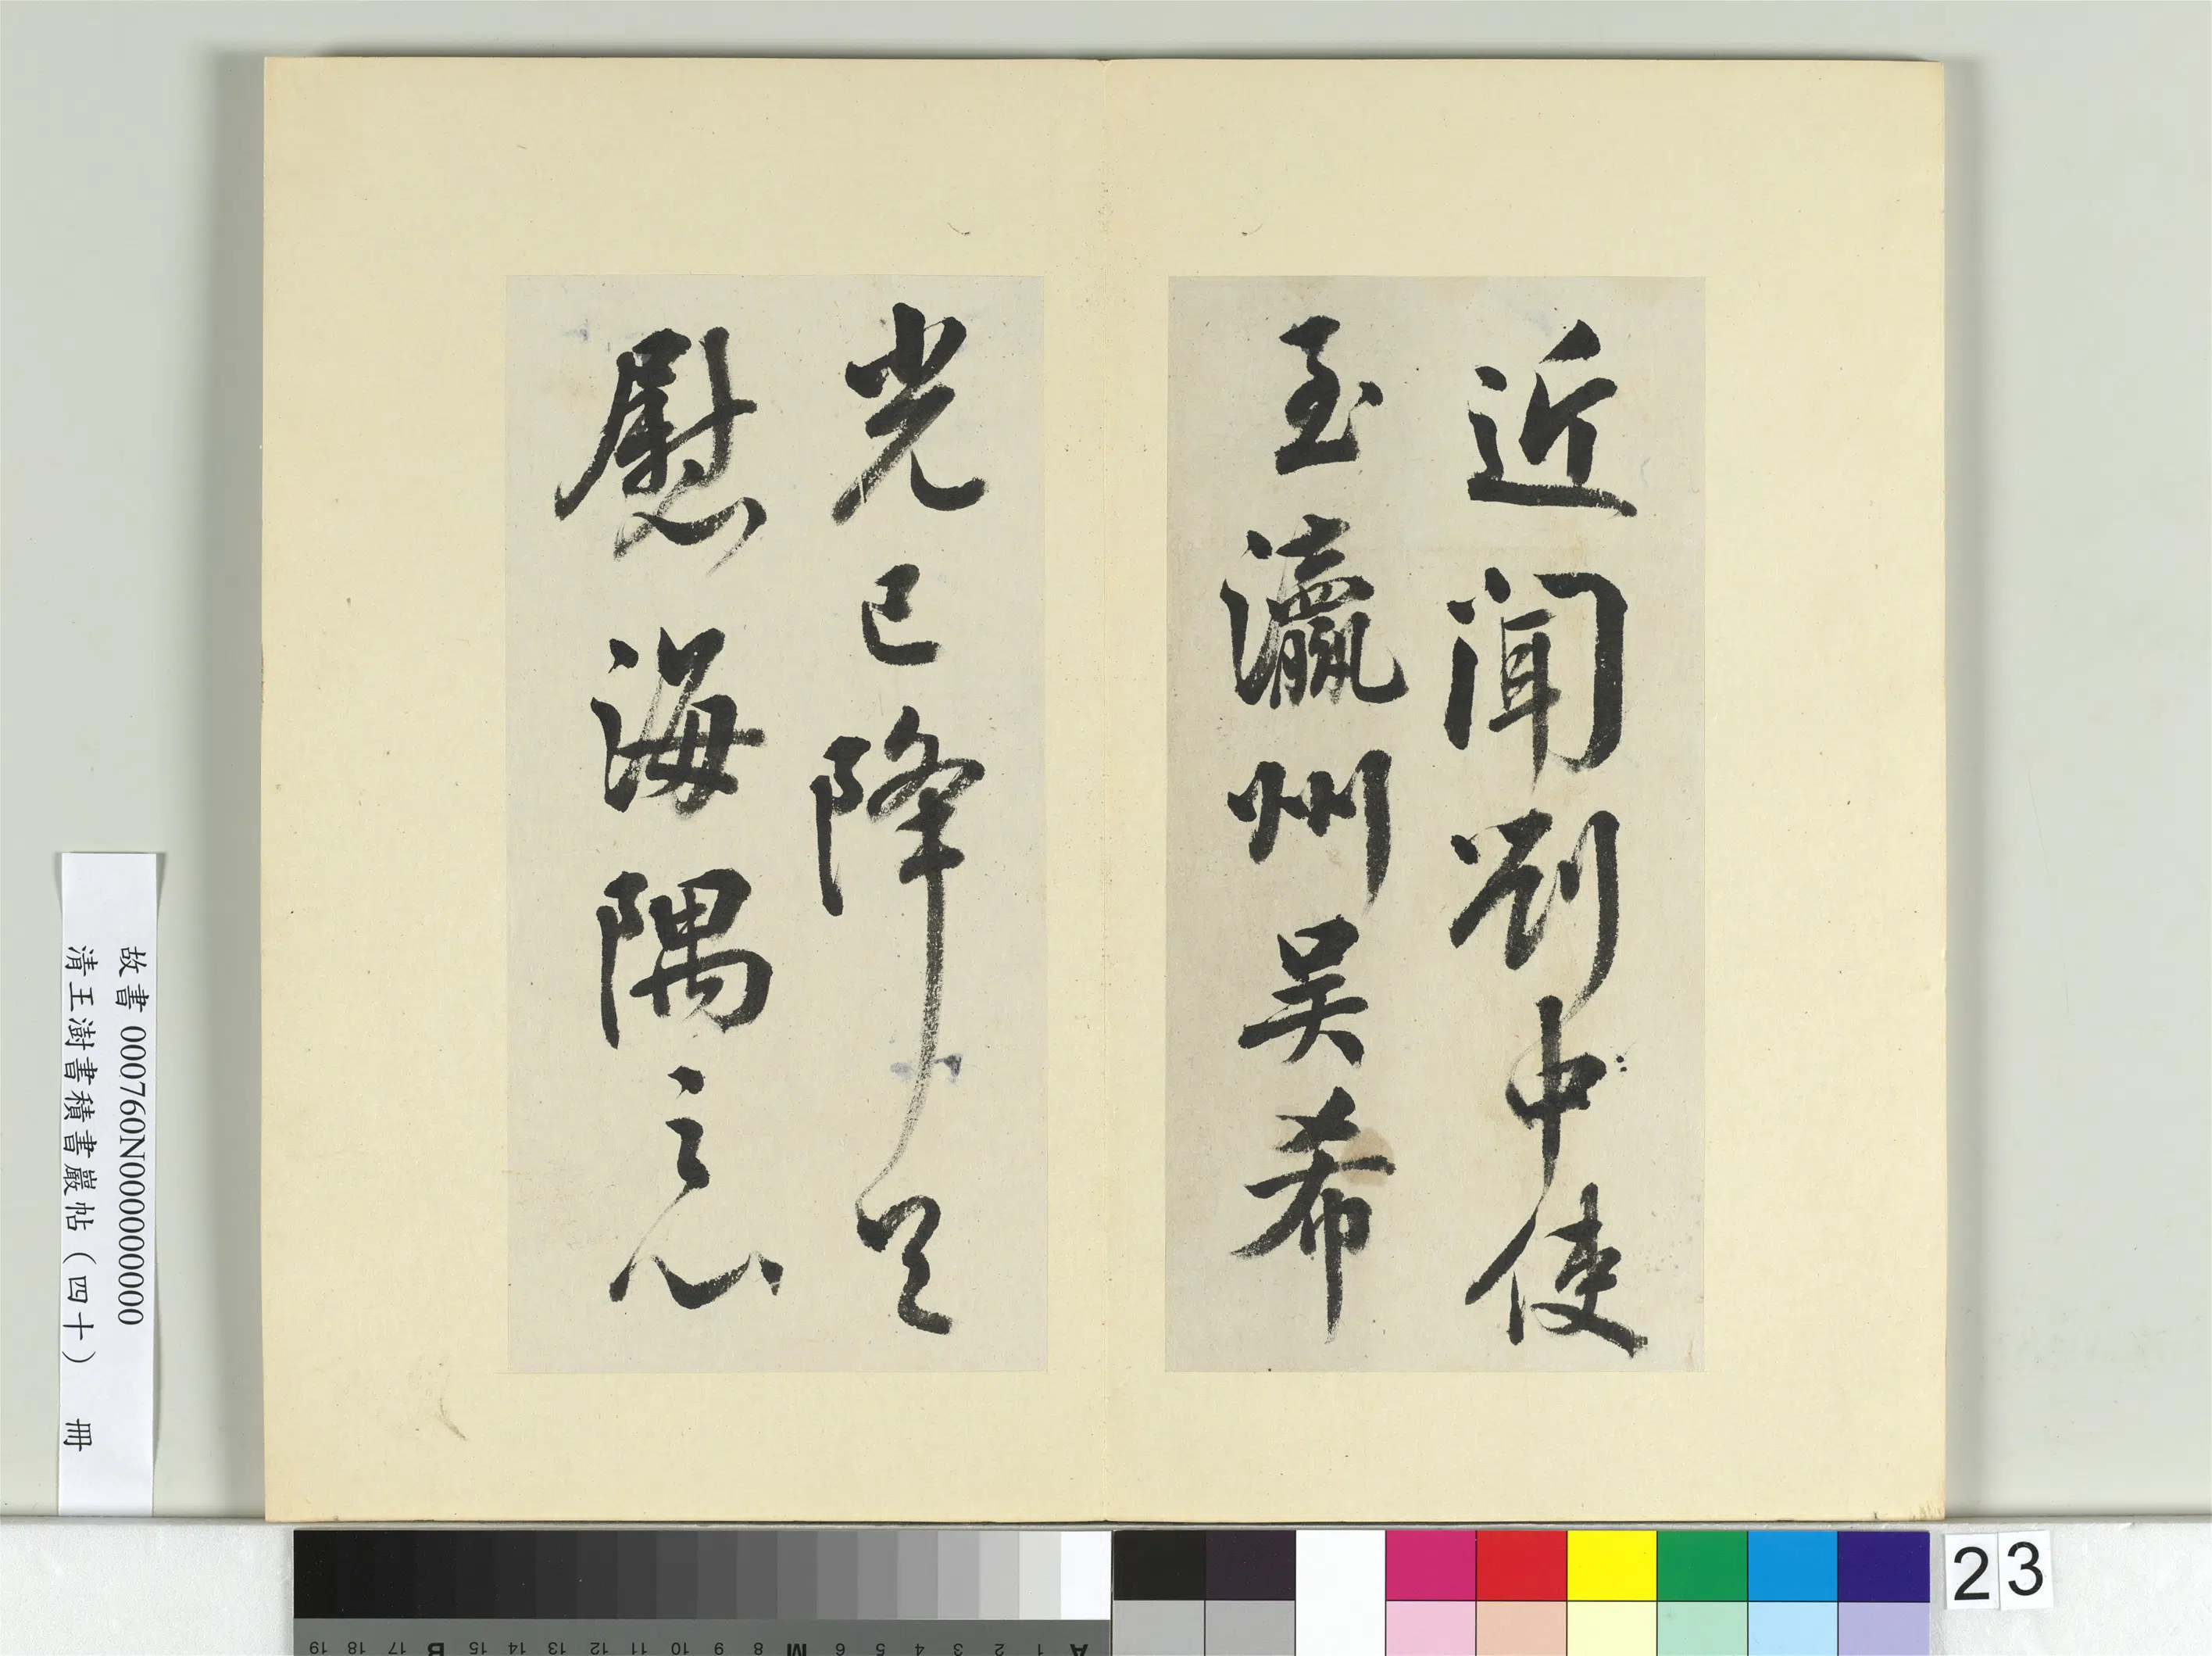 近聞劉中使
至瀛州吴希
光已降足
慰海隅之心
故書 000760N000000000
清王澍書積書巖帖（四十） 冊
23
A 1 2 3 4 5 6 M 8 9 10 11 12 13 14 15 B 17 18 19